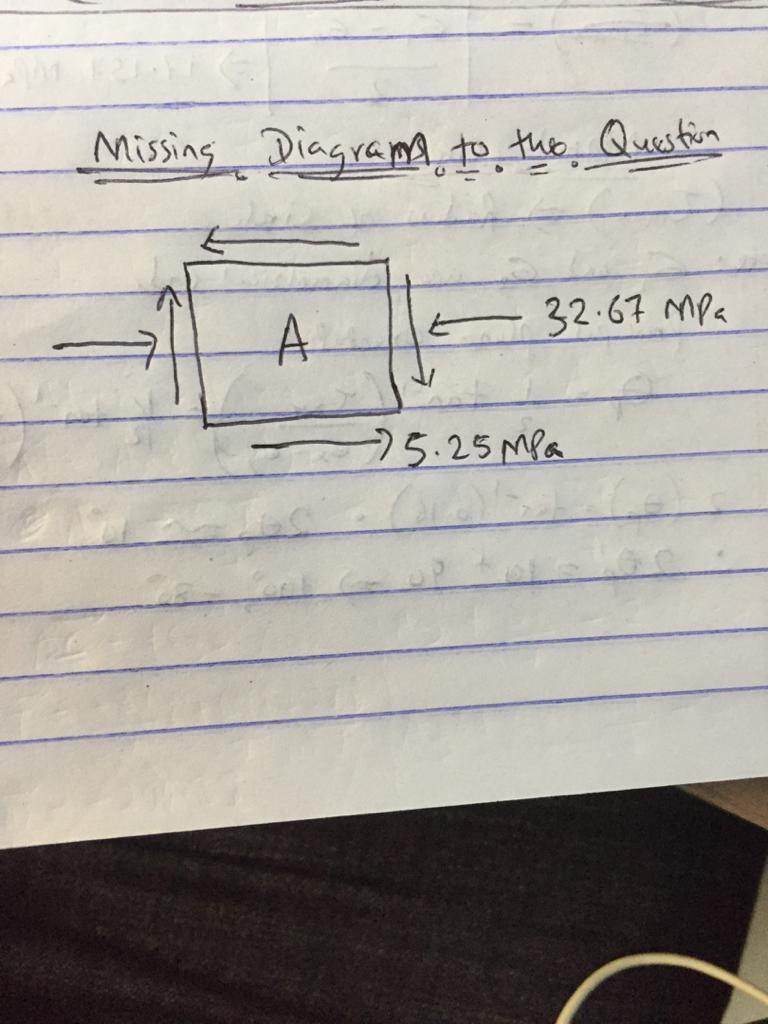 Missing Diagrams to the Question
A
32.67 MPa
5.25 MPa